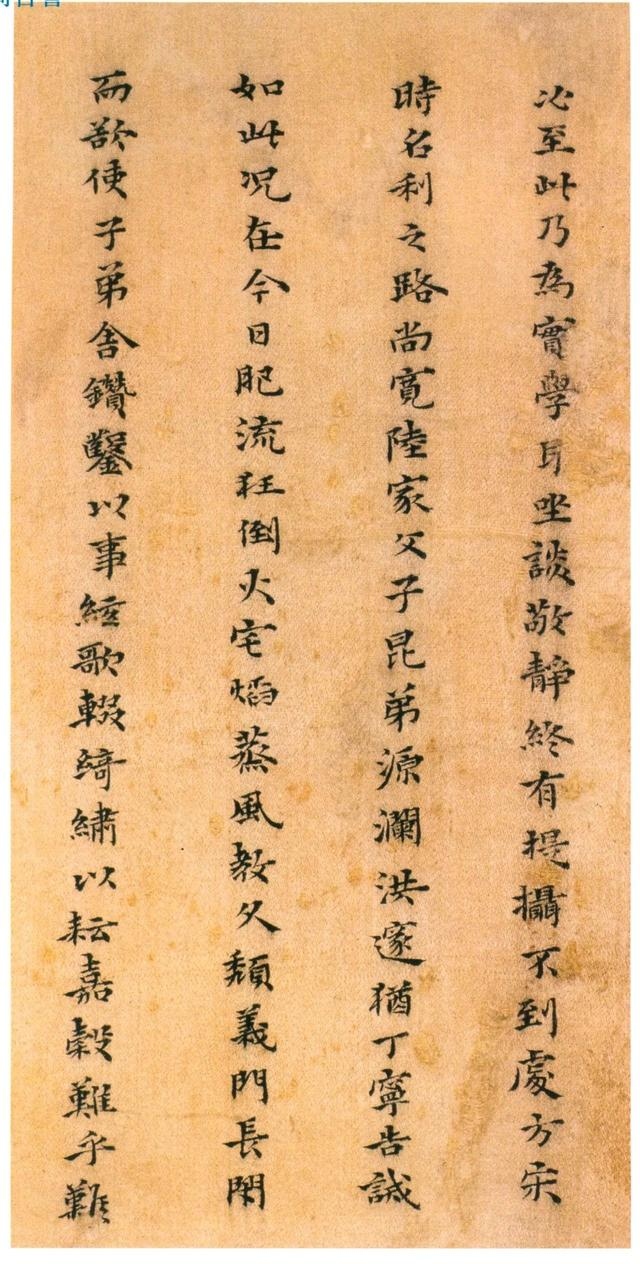 必至此乃為實學耳坐談敬靜終有提攝不到處方宋
時名利之路尚寬陸家父子昆弟源瀾洪邃猶丁寧告誡
如此况在今日肥流狂倒火宅焰蒸風教久頹義門長閑
而欲使子弟舍鑽鑿以事絃歌輟綺繡以耘嘉穀難乎難